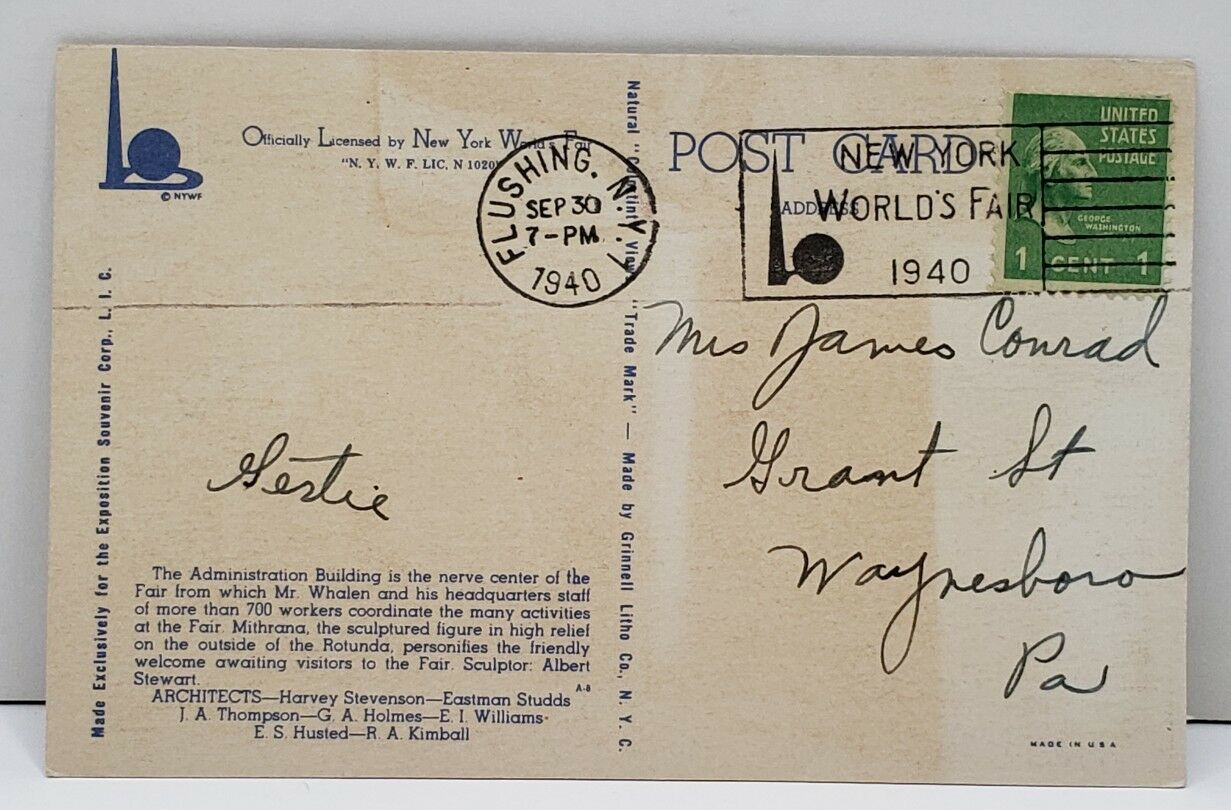 Officially Licensed by New York World's Fair
"N. Y. W. F. LIC. N 1020"
© NYWF
Made Exclusively for the Exposition Souvenir Corp., L. I. C.
Gertie
The Administration Building is the nerve center of the
Fair from which Mr. Whalen and his headquarters staff
of more than 700 workers coordinate the many activities
at the Fair. Mithrana, the sculptured figure in high relief
on the outside of the Rotunda, personifies the friendly
welcome awaiting visitors to the Fair. Sculptor: Albert
Stewart.
A-8
ARCHITECTS—Harvey Stevenson—Eastman Studds
J. A. Thompson—G. A. Holmes—E. I. Williams
E. S. Husted—R. A. Kimball
Natural "Colortint View" "Trade Mark" — Made by Grinnell Litho Co., N. Y. C.
FLUSHING. N.Y. 1
SEP 30
7-PM
1940
POST CARD
ADDRESS
NEW YORK
WORLD'S FAIR
1940
UNITED
STATES
POSTAGE
GEORGE
WASHINGTON
1 CENT 1
Mrs James Conrad
Grant St
Waynesboro
Pa
MADE IN U S A